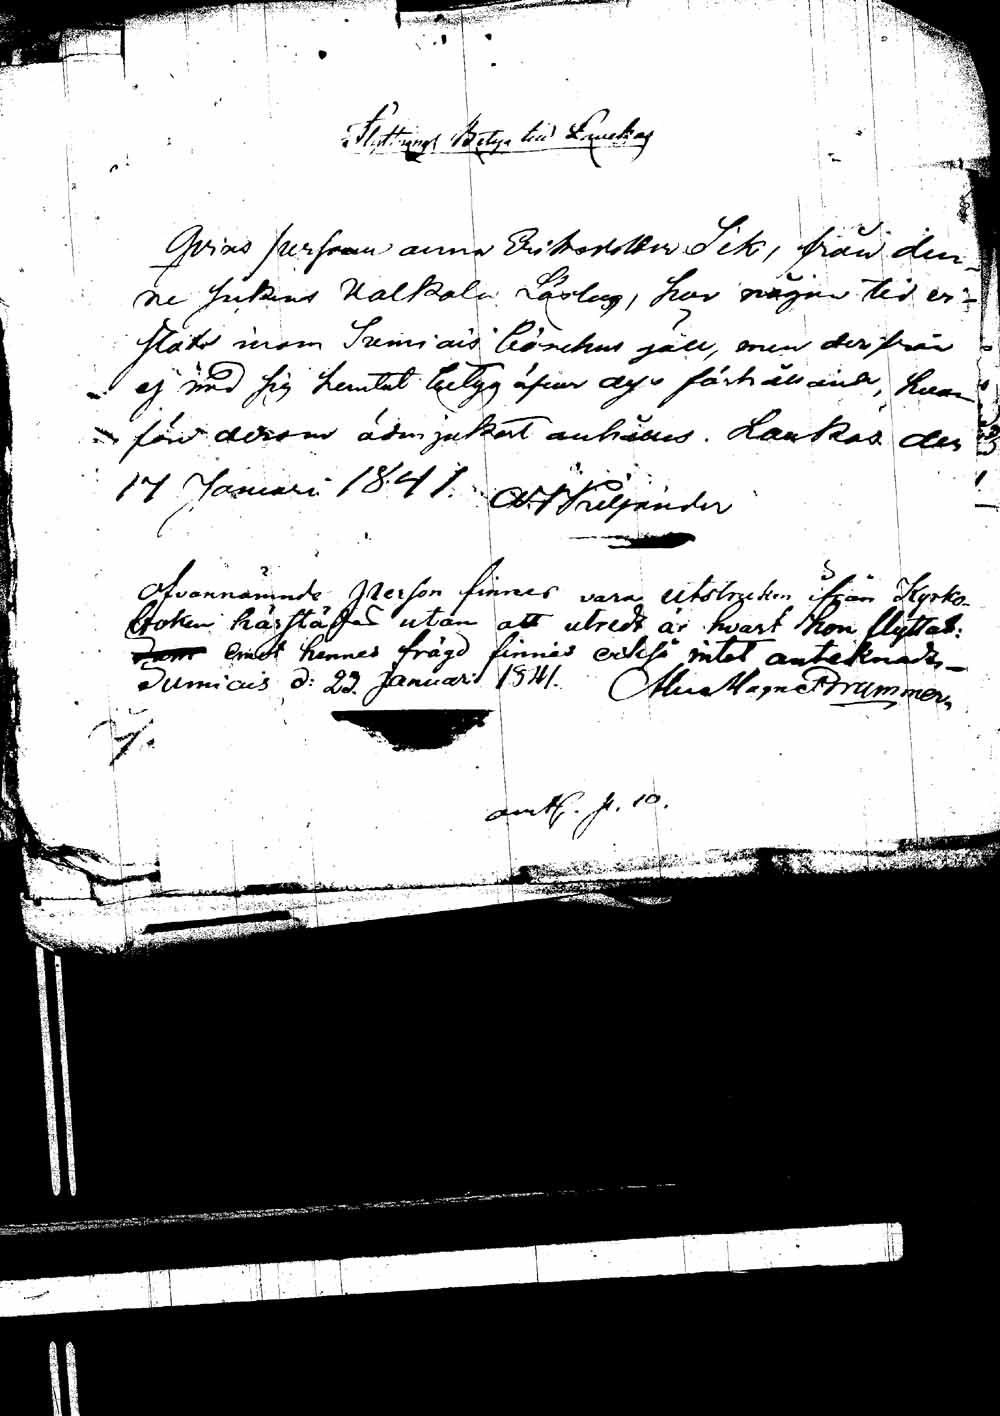 Flyttnings Betyg till Laukas
Qvins persoan anna Eriksdotter Sik, från den-
ne sokens Valkola, har någon tid vi-
stats inom Sumiais gäll, men derifrån
ej med sig hemtat betyg öfver dess förhållande, hvar-
före derom ödmjukast anhålles. Laukas den
17 Januari 1841. Kiljander
Ofvannämnde person finnes vara utstruken ifrån Kyrko-
boken härstädes utan att utredt är hvart hon flyttat:
emot hennes frägd finnes intet anteknadt,
Sumiais d: 23 Januari 1841. Brummer
p. 10.